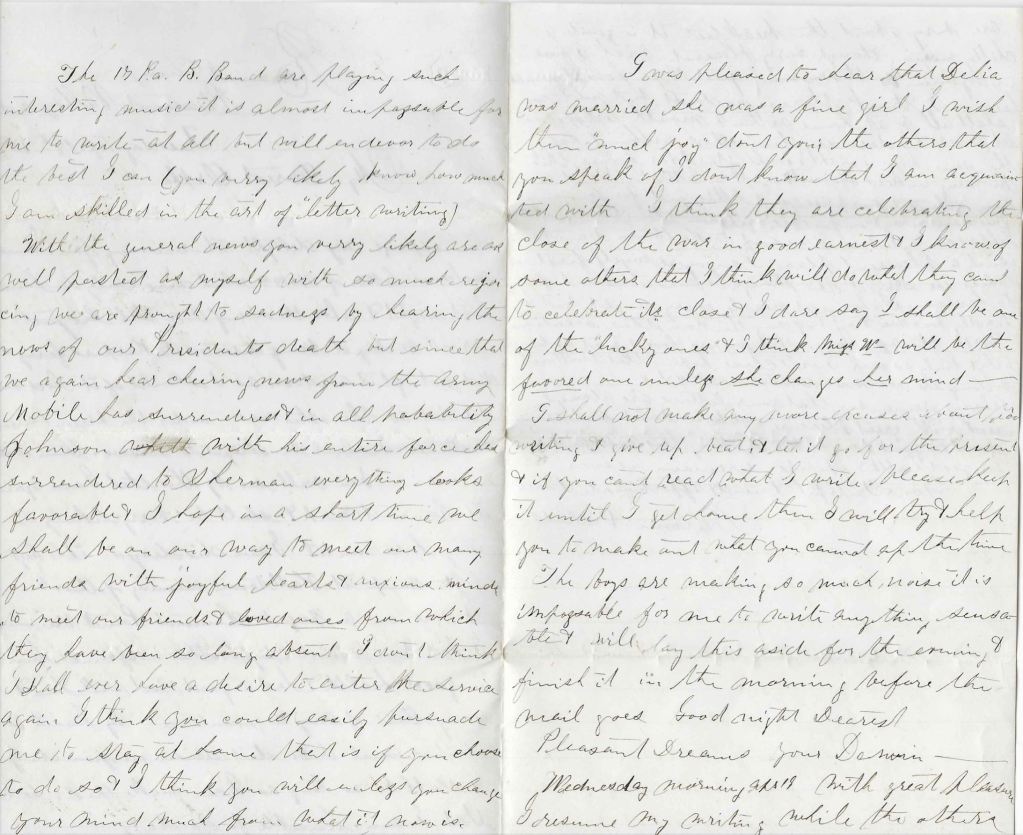 The 17 Pa. B. Band are playing such
interesting music it is almost impossable for
me to write at all but will endevor to do
the best I can (you verry likely know how much
I am skilled in the art of "letter writing)
With the general news you verry likely are as
well posted as myself with so much rejoi
cing we are brought to sadness by hearing the
news of our Presidents death but since that
we again hear cheering news from the Army
Mobile has surrendered & in all probability
Johnson with his entire force has
surrendered to Sherman everything looks
favorable & I hope in a short time we
shall be on our way to meet our many
friends with joyful hearts & anxious minds
to meet our friends & loved ones from which
they have been so long absent I dont think
I shall ever have a desire to enter the service
again I think you could easily pursuade
me to stay at home that is if you choose
to do so & I think you will unless you change
your mind much from what it now is.
I was pleased to hear that Delia
was married she was a fine girl I wish
them "much joy" dont you, the others that
you speak of I dont know that I am acquain
ted with I think they are celebrating the
close of the war in good earnest & I know of
some others that I think will do what they can
to celebrate its close & I dare say I shall be one
of the "lucky ones" & I think Miss W will be the
favored one unless she changes her mind —
I shall not make any more excuses about
writing I give up beat & let it go for the present
& if you cant read what I write please keep
it until I get home then I will try & help
you to make out what you cannot at the time
The boys are making so much noise it is
impossable for me to write anything sensa
ble & will lay this aside for the evening &
finish it in the morning before the
mail goes Good night Dearest
Pleasant Dreams your Derwin —
Wednesday morning Apr 19 with great pleasure
I resume my writing while the others